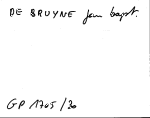 DE BRUYNE Jean bapt.
GP 1705/30